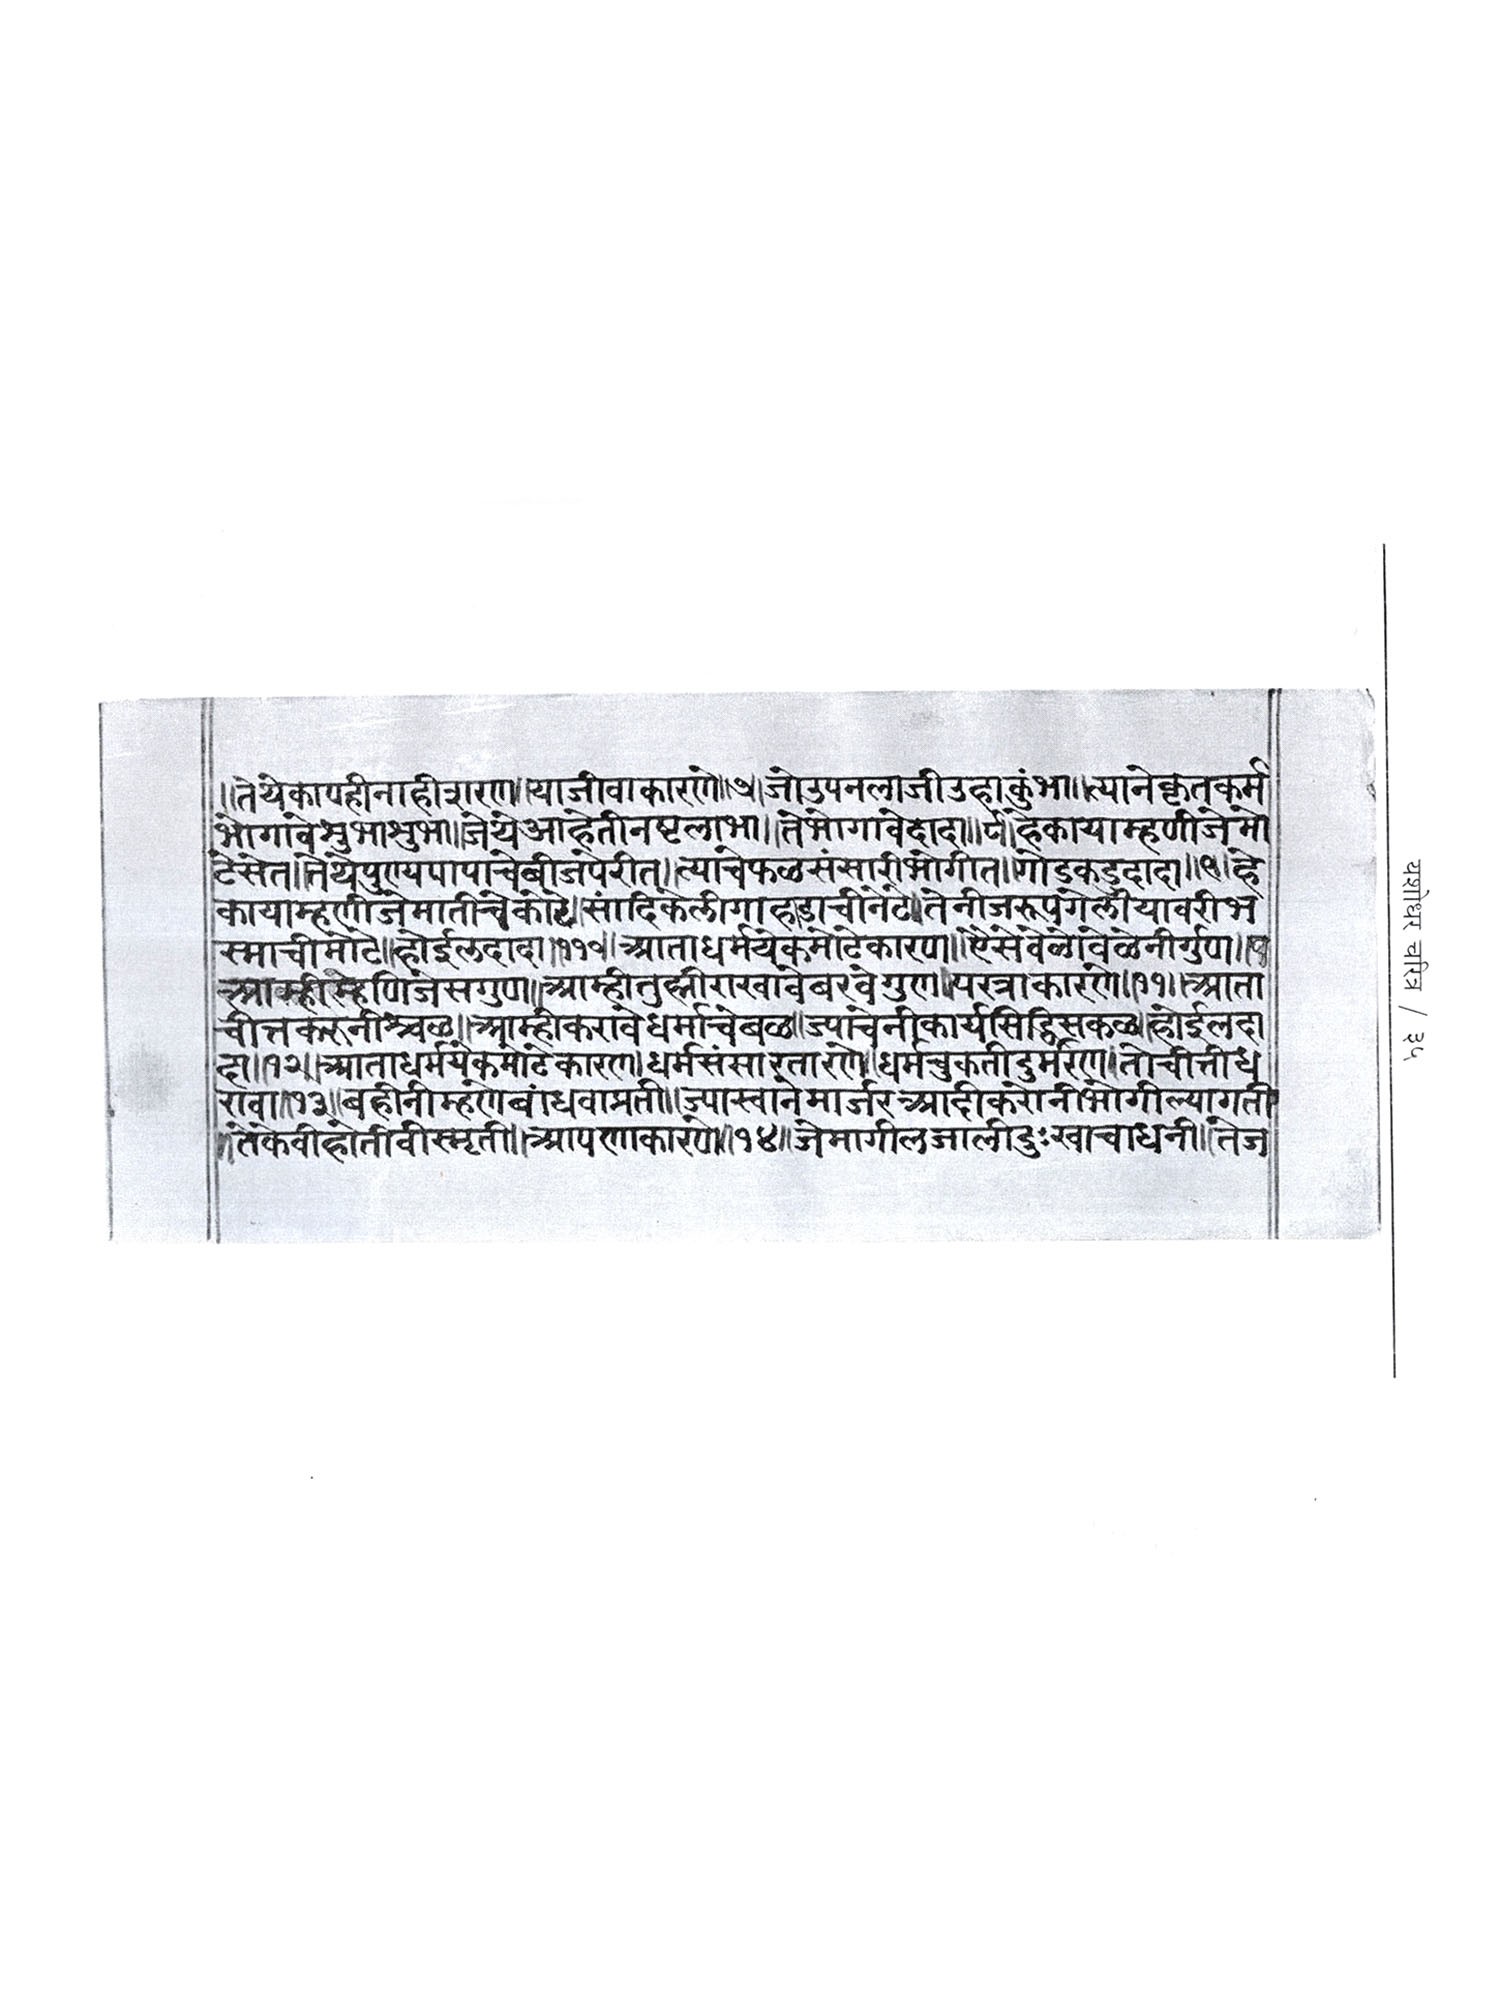 ॥तेथेकापहीनाहीशरण॥याजीवाकारणे॥७॥जोउपनलाजीउहाकुंभा॥त्यानेकृतकर्म
भोगावेसुभासुभा॥जेथेआहेतीनष्टलाभा॥तेभोगावेदादा॥८॥हेकायाम्हणीजेमो
टेसेत॥तेथेपुण्यपापाचेबीजपेरीत॥त्याचेफळसंसारीभोगीत॥गोडकडुदादा॥९॥हे
कायाम्हणीजेमातीचेकोटे॥सांदिकेलीगाहाडाचीनेटे॥तेनीजरुपगेलीयावरीभ
स्माचीमोटे॥होईलदादा॥११०॥आताधर्मयेकमोटेकारण॥ऐसेवेळोवेळेनीर्गुण॥
आम्हीम्हणिजेसगुण॥आम्हीतुह्मीराखावेबरवेगुण॥परत्राकारणे॥११॥आता
चीत्तकरुनीश्चळ॥आम्हीकरावेधर्माचेबळ॥ज्याचेनीकार्यसिद्धिसकळ॥होईलदा
दा॥१२॥आताधर्मयेकमोटेकारण॥धर्मसंसारतारणे॥धर्मेचुकतीदुर्मरण॥तोचीत्तीध
रावा॥१३॥बहीनीम्हणेबांधवाप्रती॥ज्यास्वानमार्जरआदीकरोनीभोगील्यागती
॥तेकेवीहोतीवीस्मृती॥आपणाकारणे॥१४॥जेमागीलजालीदुःखाचाधनी॥तेज
यशोधर चरित्र / ३५